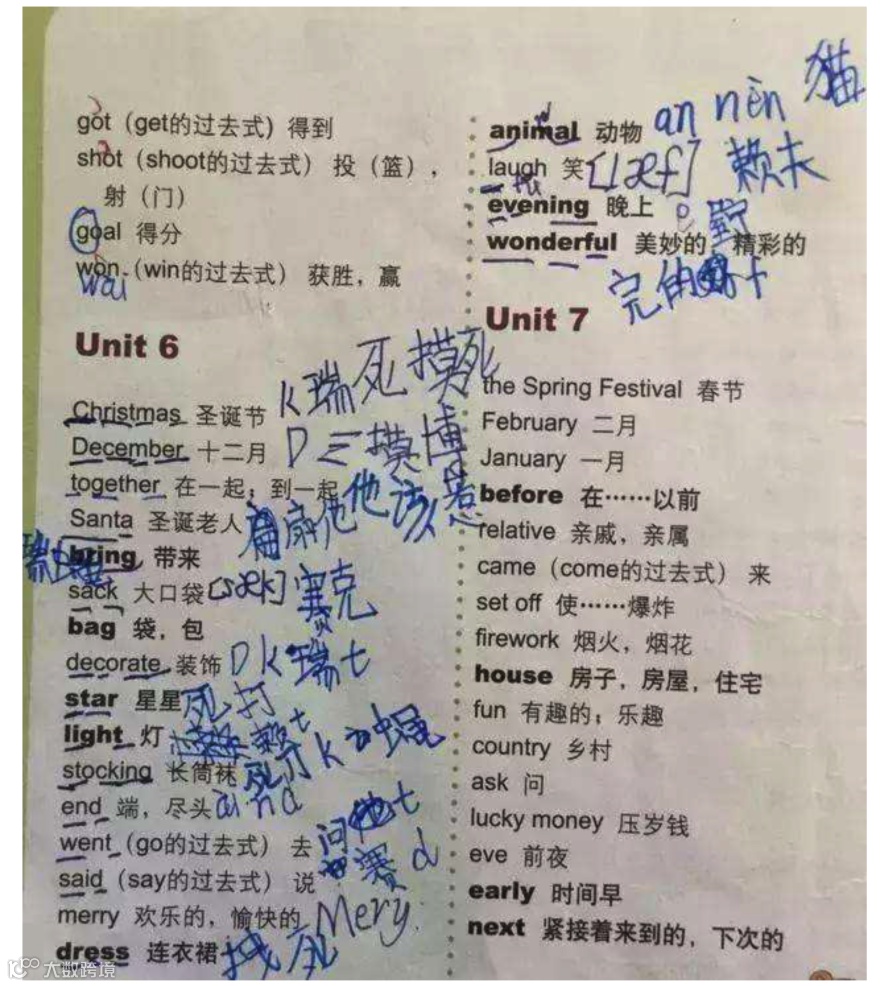 got（get的过去式）得到
shot（shoot的过去式）投（篮），
射（门）
goal 得分
won（win的过去式）获胜，赢
wai
Unit 6
Christmas 圣诞节 K瑞死摸死
December 十二月 D三摸博
together 在一起；到一起
Santa 圣诞老人 扇他
bring 带来
sack 大口袋 [sæk] 赛克
bag 袋，包
decorate 装饰 D K 瑞 t
star 星星 死打
light 灯 赖 t
stocking 长筒袜 死 K
end 端，尽头 ai nd
went（go的过去式）去 问 t
said（say的过去式）说 赛 d
merry 欢乐的，愉快的 Mery
dress 连衣裙 死
animal 动物 an nen 猫
laugh 笑 [læf] 赖夫
evening 晚上
wonderful 美妙的，精彩的
完的
Unit 7
the Spring Festival 春节
February 二月
January 一月
before 在……以前
relative 亲戚，亲属
came（come的过去式）来
set off 使……爆炸
firework 烟火，烟花
house 房子，房屋，住宅
fun 有趣的；乐趣
country 乡村
ask 问
lucky money 压岁钱
eve 前夜
early 时间早
next 紧接着来到的，下次的
大数跨境